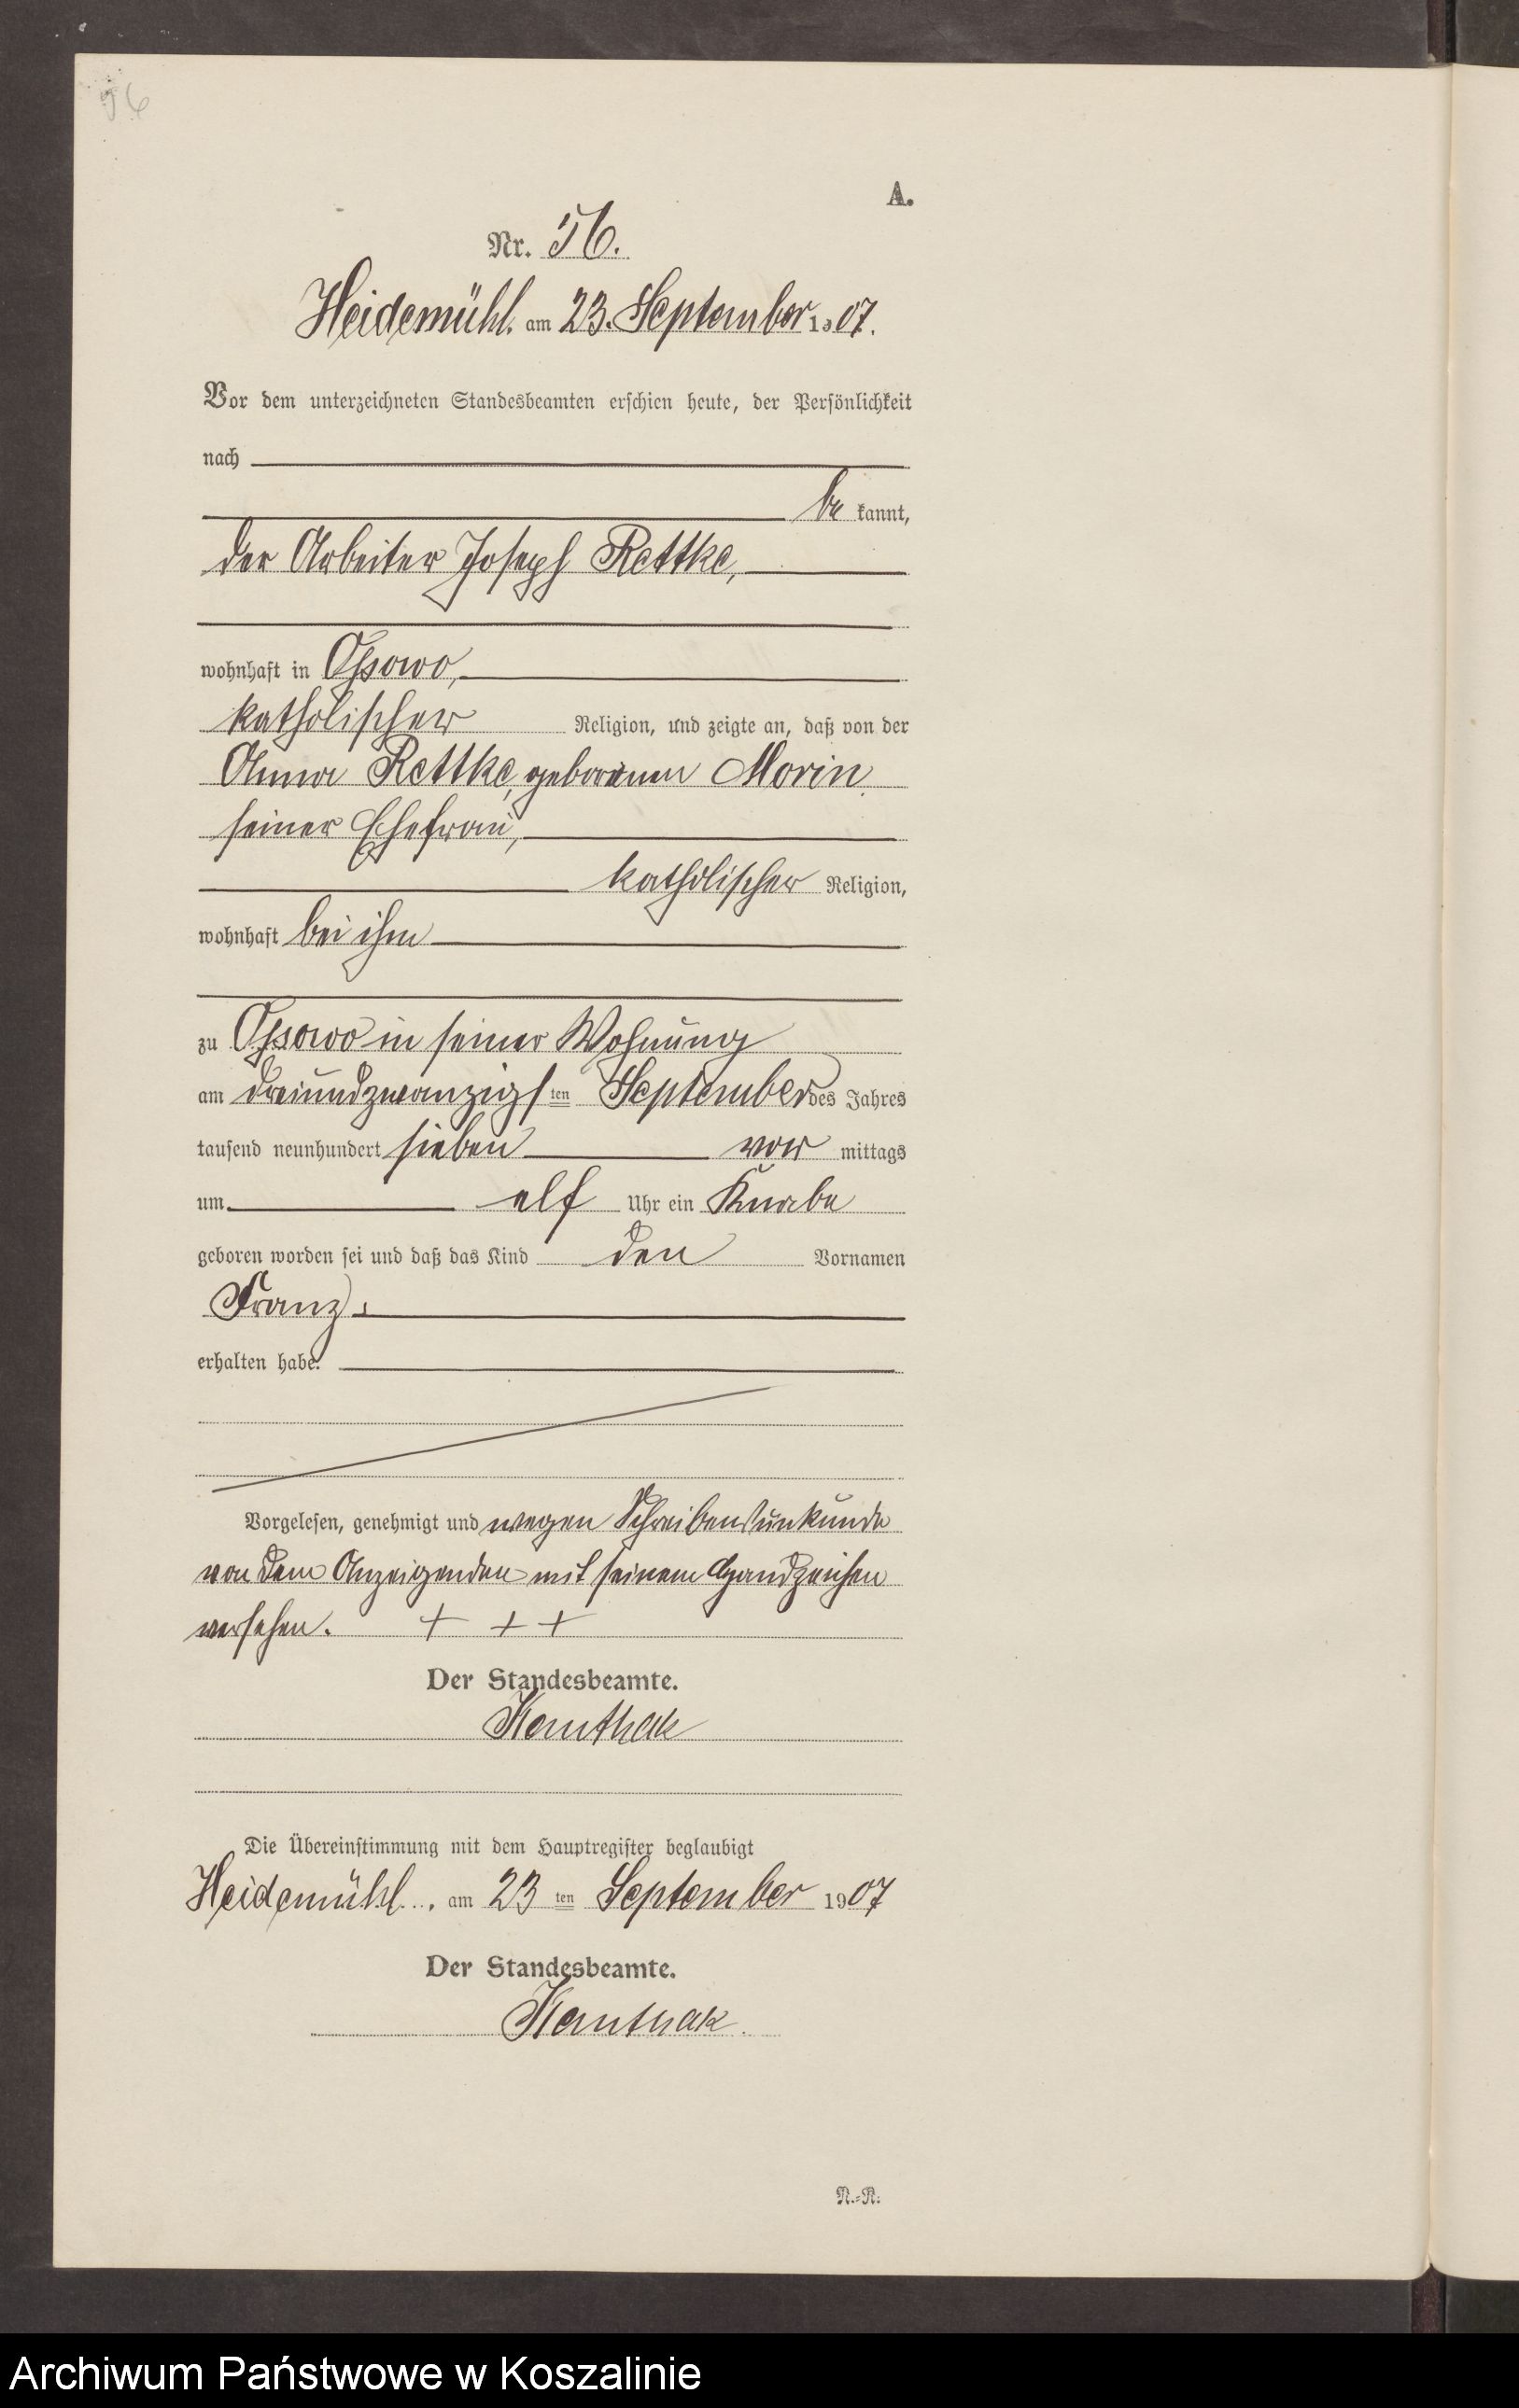 96
A.
Nr. 56.
Heidemühl. am 23. September 1907.
Vor dem unterzeichneten Standesbeamten erschien heute, der Persönlichkeit
nach
be kannt,
der Arbeiter Joseph Rettke,
wohnhaft in Ossowo,
katholischer Religion, und zeigte an, daß von der
Anna Rettke, geborenen Morin
seiner Ehefrau,
katholischer Religion,
wohnhaft bei ihm
zu Ossowo in seiner Wohnung
am dreiundzwanzigsten September des Jahres
tausend neunhundert sieben vor mittags
um elf Uhr ein Knabe
geboren worden sei und daß das Kind den Vornamen
Franz
erhalten habe.
Vorgelesen, genehmigt und wegen Schreibensunkunde
von dem Anzeigenden mit seinem Handzeichen
versehen. + + +
Der Standesbeamte.
Kanthak
Die Übereinstimmung mit dem Hauptregister beglaubigt
Heidemühl., am 23 ten September 1907
Der Standesbeamte.
Kanthak.
N.-R.
Archiwum Państwowe w Koszalinie